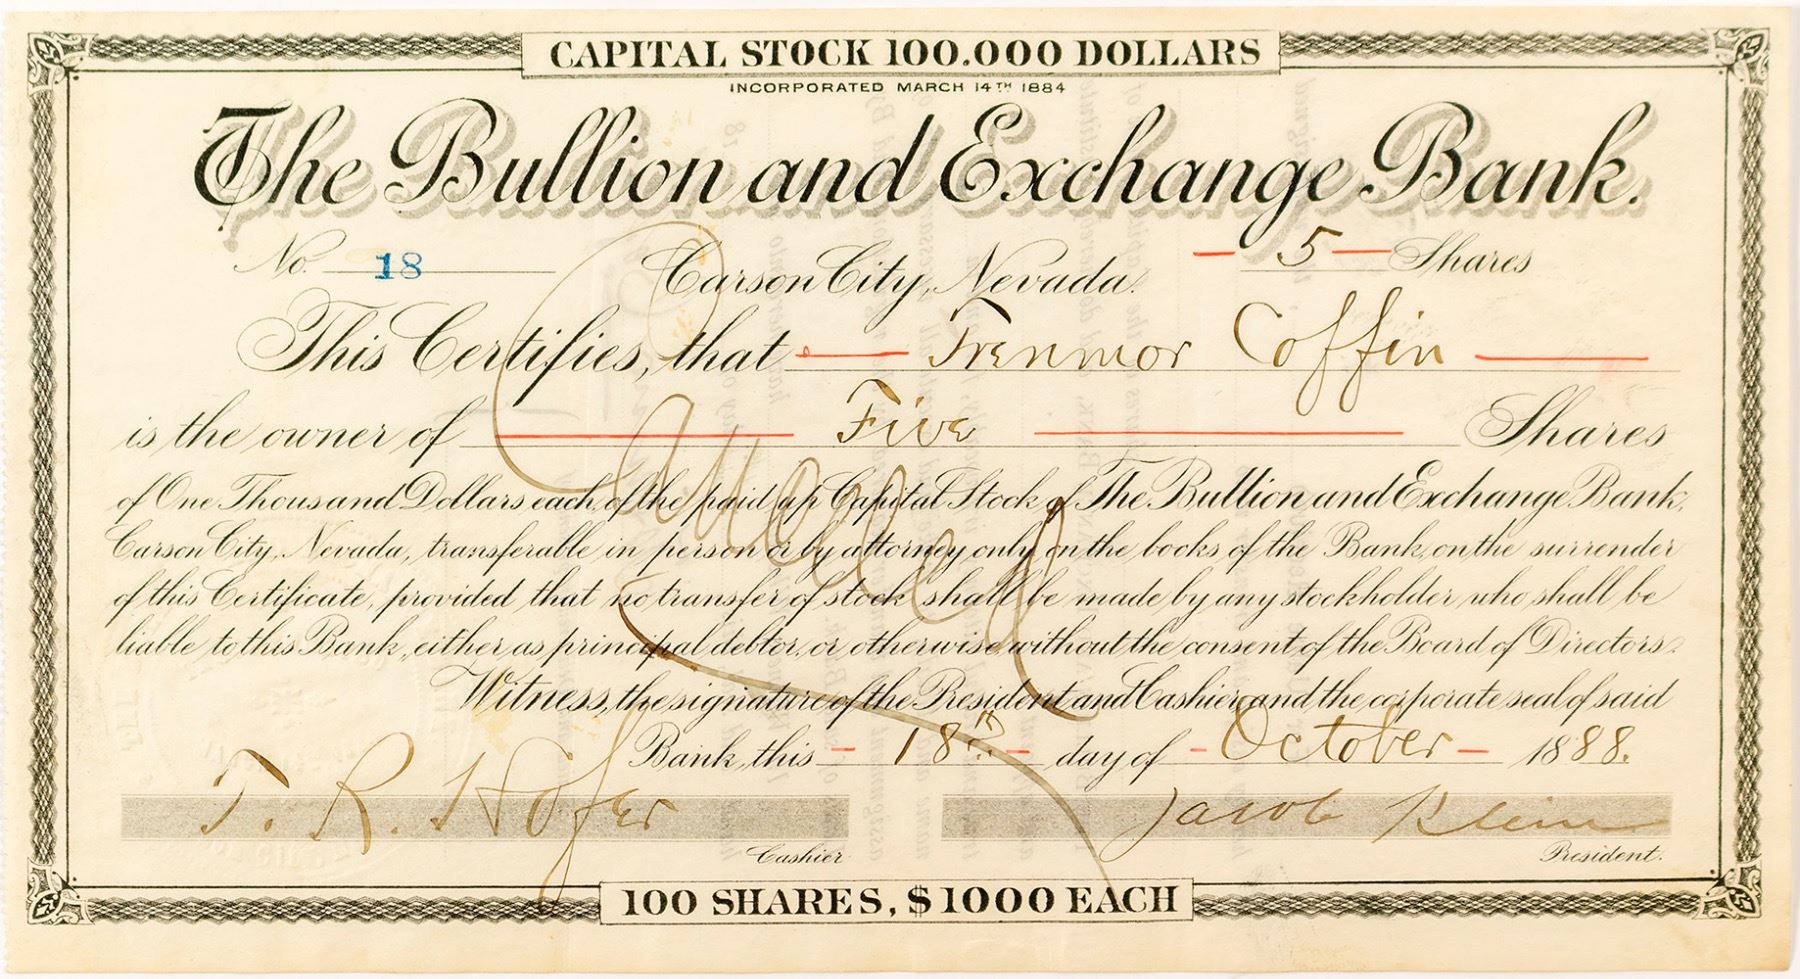 CAPITAL STOCK 100.000 DOLLARS
INCORPORATED MARCH 14TH 1884
The Bullion and Exchange Bank.
No. 18 Carson City, Nevada. – 5 – Shares
This Certifies, that — Trenmor Coffin —
is the owner of — Five — Shares
of One Thousand Dollars each, of the paid up Capital Stock of The Bullion and Exchange Bank,
Carson City, Nevada, transferable in person or by attorney only on the books of the Bank, on the surrender
of this Certificate, provided that no transfer of stock shall be made by any stockholder who shall be
liable to this Bank, either as principal debtor, or otherwise, without the consent of the Board of Directors.
Witness, the signature of the President and Cashier and the corporate seal of said
Bank, this – 18th – day of – October – 1888.
T. R. Hofer Jacob Klein
Cashier President.
100 SHARES, $1000 EACH
Cancelled